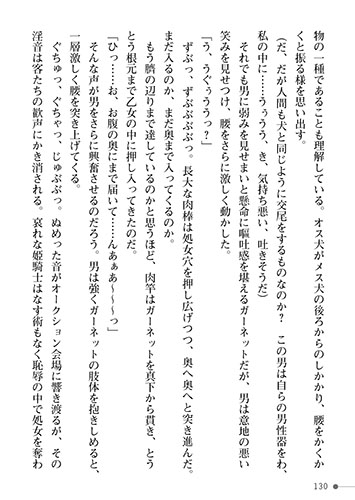 物の一種であることも理解している。オス犬がメス犬の後ろからのしかかり、腰をかくか
くと振る様を思い出す。
(だ、だが人間も犬と同じように交尾をするものなのか? この男は自らの男性器をわ、
私の中に……うぅうう、き、気持ち悪い、吐きそうだ)
それでも男に弱みを見せまいと懸命に嘔吐感を堪えるガーネットだが、男は意地の悪い
笑みを見せつけ、腰をさらに激しく動かした。
「う、うぐぅううっ?」
ずぶっ、ずぶぶぶぶっ。長大な肉棒は処女穴を押し広げつつ、奥へ奥へと突き進んだ。
まだ入るのか、まだ奥まで入ってくるのか。
もう臍の辺りまで達しているのかと思うほど、肉竿はガーネットを真下から貫き、とう
とう根元まで乙女の中に押し入ってきたのだ。
「ひっ……お、お腹の奥にまで届いて……んあぁあ~~~っ」
そんな声が男をさらに興奮させるのだろう。男は強くガーネットの肢体を抱きしめると、
一層激しく腰を突き上げてくる。
ぐちゅっ、ぐちゃっ、じゅぶぶっ。ぬめった音がオークション会場に響き渡るが、その
淫音は客たちの歓声にかき消される。哀れな姫騎士はなす術もなく恥辱の中で処女を奪わ
130